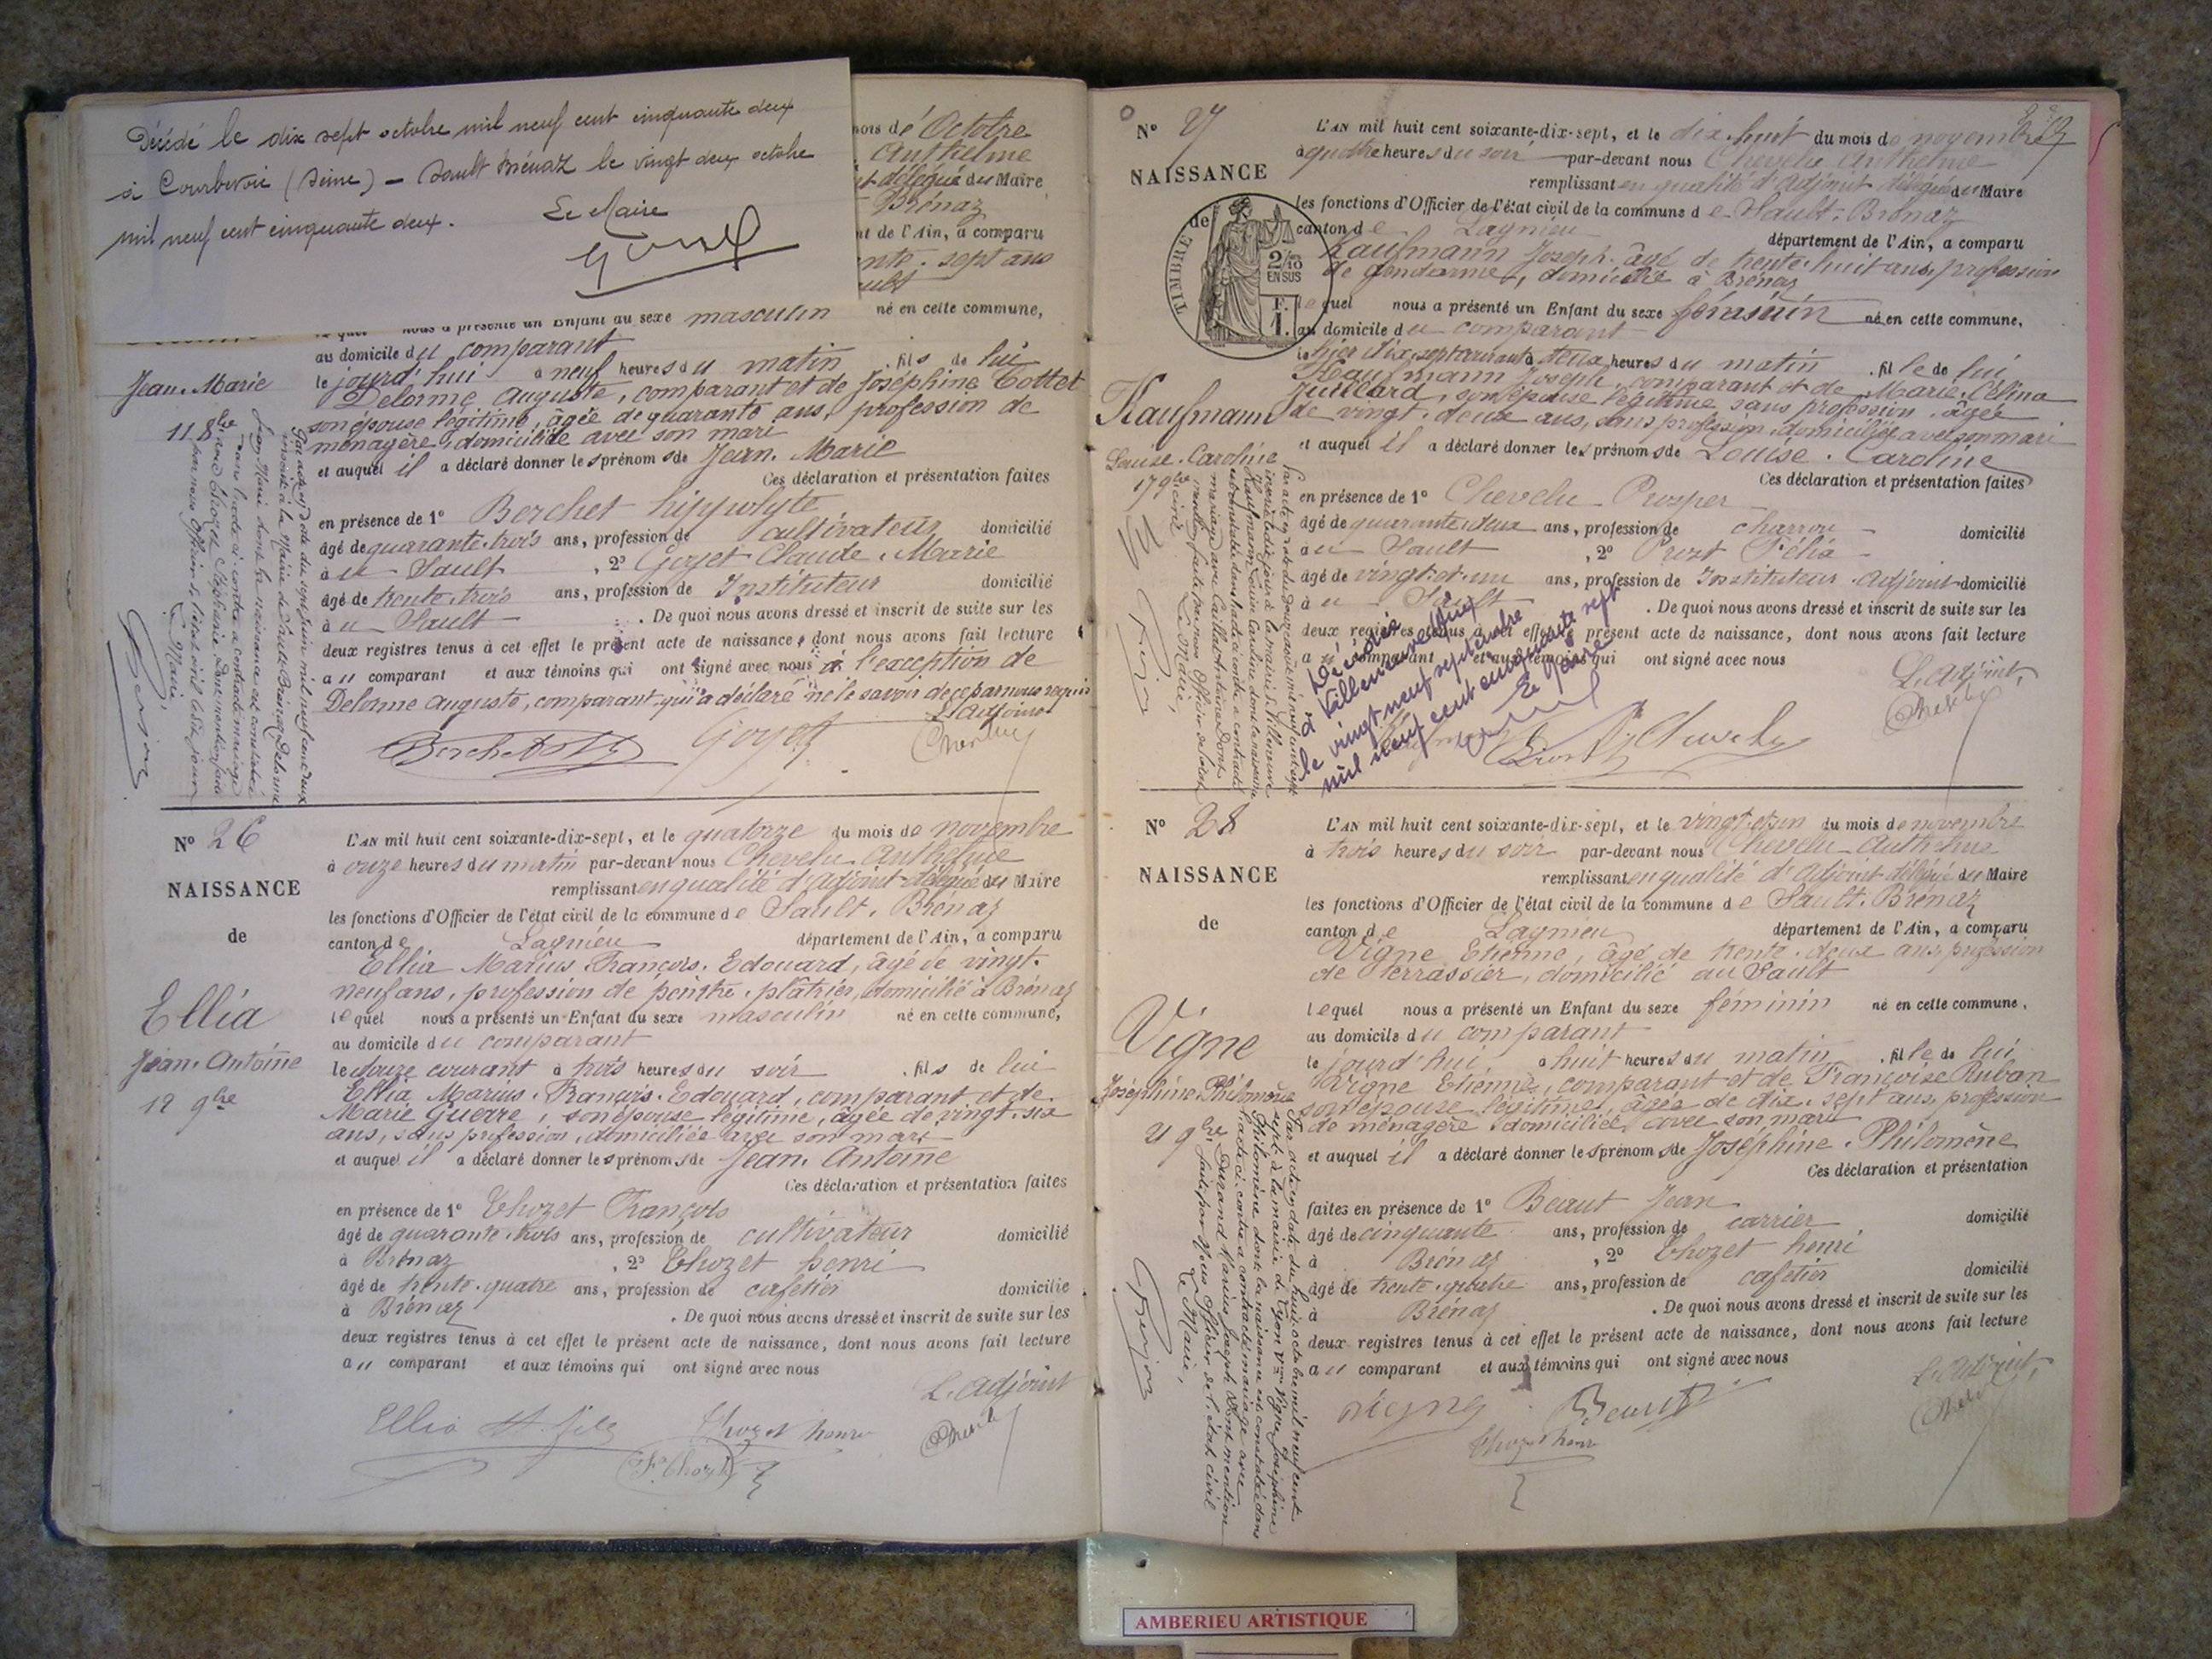 Décédé le dix sept octobre mil neuf cent cinquante deux
à Courbevoie (Seine) - Sault Brénaz le vingt deux octobre
mil neuf cent cinquante deux. Le Maire
mois de Octobre
Anthelme
délégué du Maire
Brénaz
de l'Ain, a comparu
sept ans
nous a présenté un Enfant du sexe masculin né en cette commune,
au domicile du comparant
le jourd'hui à neuf heures du matin fils de lui
Delorme Auguste, comparant et de Joséphine Tottet
son épouse légitime, âgée de quarante ans, profession de
ménagère, domiciliée avec son mari
et auquel il a déclaré donner les prénoms de Jean. Marie
Ces déclaration et présentation faites
en présence de 1° Berchet hippolyte
âgé de quarante trois ans, profession de cultivateur domicilié
au Sault, 2° Goyet Claude. Marie
âgé de trente trois ans, profession de Instituteur domicilié
au Sault. De quoi nous avons dressé et inscrit de suite sur les
deux registres tenus à cet effet le présent acte de naissance, dont nous avons fait lecture
au comparant et aux témoins qui ont signé avec nous à l'exception de
Delorme Auguste, comparant qui a déclaré ne le savoir de ce par nous requis
L'Adjoint
Goyet
Jean. Marie
11 8bre
N° 26
NAISSANCE
de
Ellia
Jean. Antoine
12 9bre
L'AN mil huit cent soixante-dix-sept, et le quatorze du mois de novembre
à onze heures du matin par-devant nous Chevelu Anthelme
remplissant en qualité d'adjoint délégué du Maire
les fonctions d'Officier de l'état civil de la commune de Sault. Brénaz
canton de Lagnieu département de l'Ain, a comparu
Ellia Marius. François. Edouard, âgé de vingt.
neuf ans, profession de peintre. plâtrier, domicilié à Brénaz
lequel nous a présenté un Enfant du sexe masculin né en cette commune,
au domicile du comparant
le douze courant à trois heures du soir fils de lui
Ellia Marius. François. Edouard, comparant et de
Marie Guerre, son épouse légitime, âgée de vingt. six
ans, sans profession, domiciliée avec son mari
et auquel il a déclaré donner les prénoms de Jean. Antoine
Ces déclaration et présentation faites
en présence de 1° Thozet François
âgé de quarante. trois ans, profession de cultivateur domicilié
à Brénaz, 2° Thozet henri
âgé de trente. quatre ans, profession de cafetier domicilié
à Brénaz. De quoi nous avons dressé et inscrit de suite sur les
deux registres tenus à cet effet le présent acte de naissance, dont nous avons fait lecture
au comparant et aux témoins qui ont signé avec nous
L'Adjoint
Thozet henri
F. Thozet
N° 27
NAISSANCE
de
TIMBRE
2/10 EN SUS
F. 1.
Kaufmann
Louise. Caroline
17 9bre
L'AN mil huit cent soixante-dix-sept, et le dix. huit du mois de novembre
à quatre heures du soir par-devant nous Chevelu Anthelme
remplissant en qualité d'Adjoint délégué du Maire
les fonctions d'Officier de l'état civil de la commune de Sault. Brénaz
canton de Lagnieu département de l'Ain, a comparu
Kaufmann Joseph. âgé de trente. huit ans, profession
de gendarme, domicilié à Brénaz
lequel nous a présenté un Enfant du sexe féminin né en cette commune,
au domicile du comparant
le hier dix sept courant à deux heures du matin fille de lui
Kaufmann Joseph, comparant et de Marie. Célina
Juillard, son épouse légitime sans profession âgée
de vingt. deux ans, sans profession domiciliée avec son mari
et auquel il a déclaré donner les prénoms de Louise. Caroline
Ces déclaration et présentation faites
en présence de 1° Chevelu Prosper
âgé de quarante deux ans, profession de charron domicilié
au Sault, 2°
âgé de vingt et un ans, profession de Instituteur. Adjoint domicilié
au Sault. De quoi nous avons dressé et inscrit de suite sur les
deux registres tenus à cet effet le présent acte de naissance, dont nous avons fait lecture
au comparant et aux témoins qui ont signé avec nous
L'Adjoint,
Décédée
à Villeneuve
le vingt neuf septembre
mil neuf cent cinquante sept
Le Maire
N° 28
NAISSANCE
de
Vigne
Joséphine. Philomène
21 9bre
L'AN mil huit cent soixante-dix-sept, et le vingt et un du mois de novembre
à trois heures du soir par-devant nous Chevelu Anthelme
remplissant en qualité d'Adjoint délégué du Maire
les fonctions d'Officier de l'état civil de la commune de Sault. Brénaz
canton de Lagnieu département de l'Ain, a comparu
Vigne Etienne, âgé de trente. deux ans, profession
de terrassier, domicilié au Sault
lequel nous a présenté un Enfant du sexe féminin né en cette commune,
au domicile du comparant
le jourd'hui à huit heures du matin fille de lui
Vigne Etienne, comparant et de Françoise Ruban
son épouse légitime, âgée de dix. sept ans, profession
de ménagère domiciliée avec son mari
et auquel il a déclaré donner les prénoms de Joséphine. Philomène
Ces déclaration et présentation
faites en présence de 1° Beaut Jean
âgé de cinquante ans, profession de carrier domicilié
à Brénaz, 2° Thozet henri
âgé de trente. quatre ans, profession de cafetier domicilié
à Brénaz. De quoi nous avons dressé et inscrit de suite sur les
deux registres tenus à cet effet le présent acte de naissance, dont nous avons fait lecture
au comparant et aux témoins qui ont signé avec nous
L'Adjoint,
Vigne
Thozet henri
AMBERIEU ARTISTIQUE